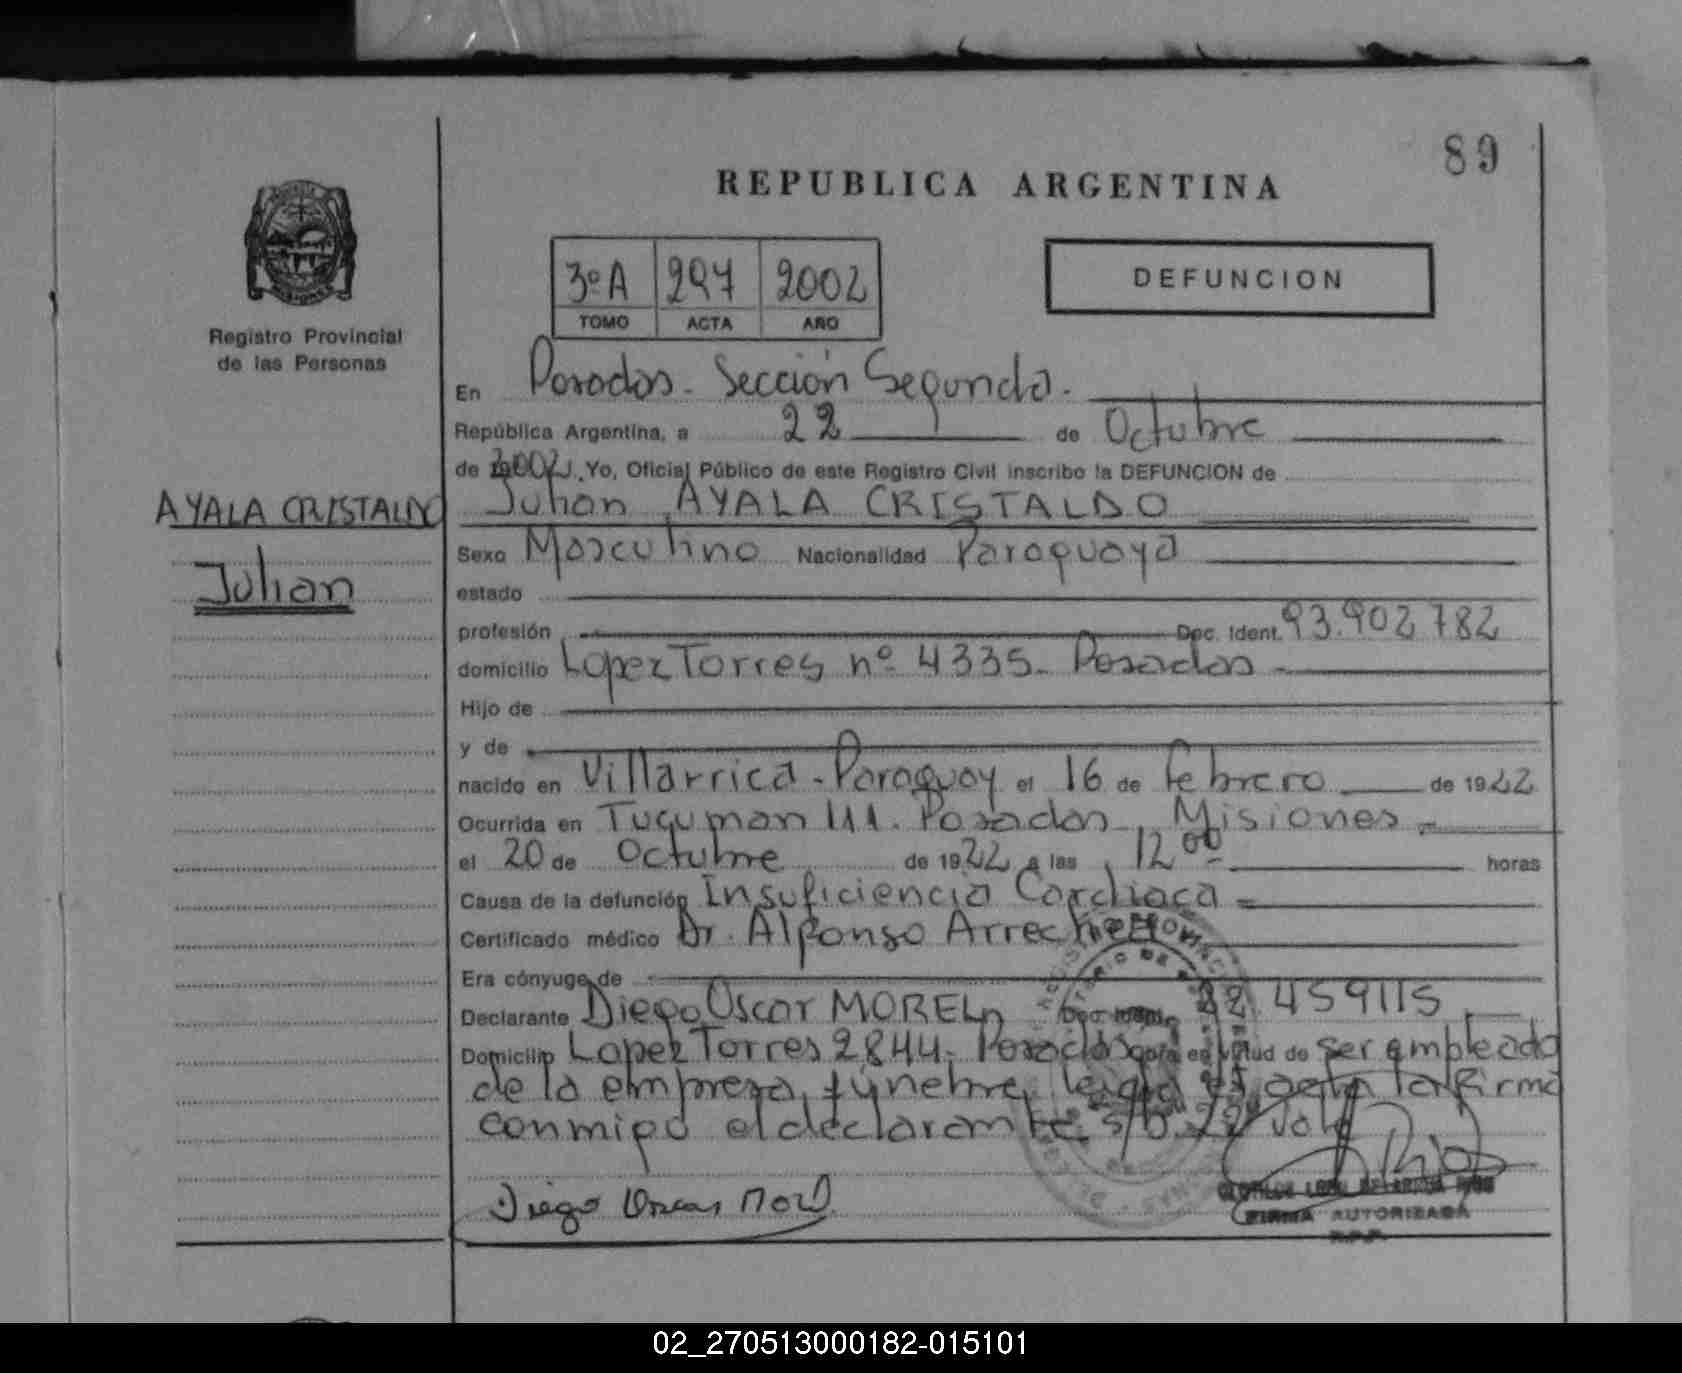 89
REPUBLICA ARGENTINA
3ºA 297 2002
TOMO ACTA AÑO
DEFUNCION
Registro Provincial
de las Personas
En Posadas. Sección Segunda.
República Argentina, a 22 de Octubre
de 2002. Yo, Oficial Público de este Registro Civil inscribo la DEFUNCION de
AYALA CRISTALDO
Julian
Julian AYALA CRISTALDO
Sexo Masculino Nacionalidad Paraguaya
estado
profesión Doc. Ident. 93.902782
domicilio Lopez Torres nº 4335- Posadas -
Hijo de
y de
nacido en Villarrica - Paraguay el 16 de Febrero de 1922
Ocurrida en Tucuman 111. Posadas, Misiones -
el 20 de Octubre de 1922 a las 12 00 horas
Causa de la defunción Insuficiencia Cardiaca
Certificado médico Dr. Alfonso
Era cónyuge de
Declarante Diego Oscar MOREL 459115
Domicilio Lopez Torres 2844- Posadas en virtud de ser empleado
de la empresa fúnebre, acta la firma
conmigo el declarante s/b 22 vale
Diego Oscar Morel
FIRMA AUTORIZADA
02_270513000182-015101